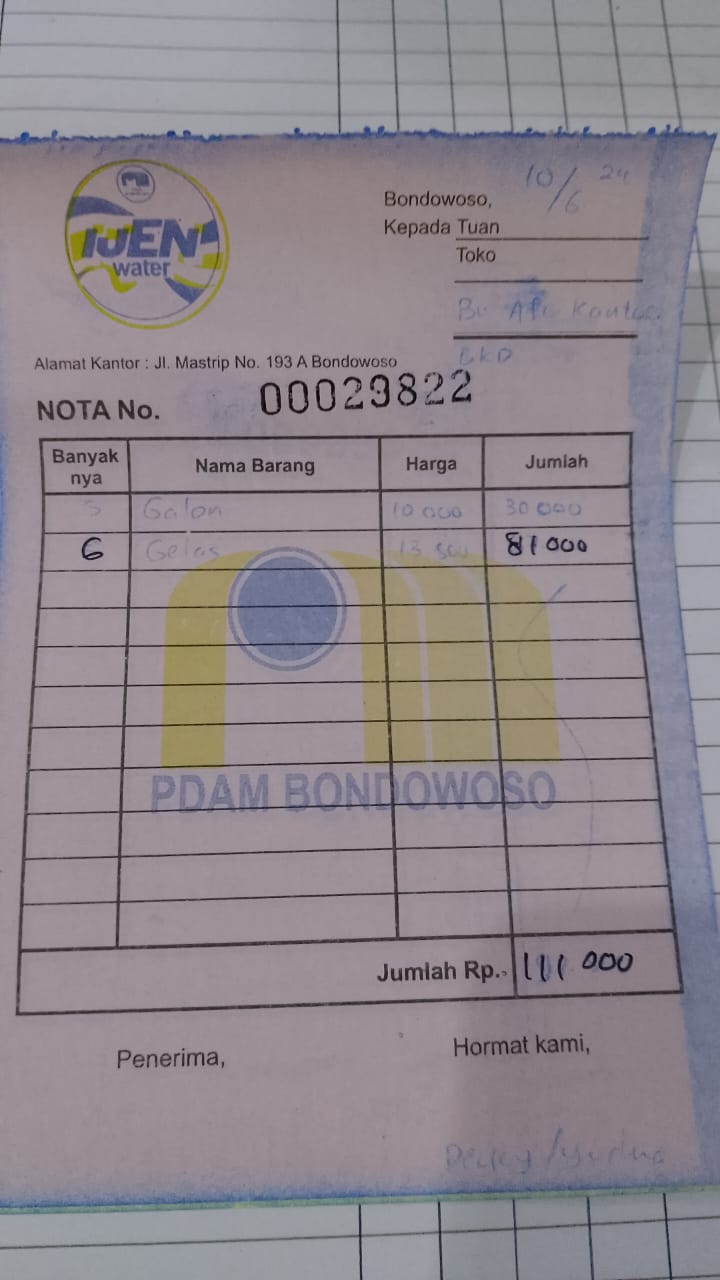 IJEN
water
Bondowoso, 10/6 24
Kepada Tuan
Toko
Bu Afi Kantor
BKD
Alamat Kantor : Jl. Mastrip No. 193 A Bondowoso
NOTA No. 00029822
Banyak nya Nama Barang Harga Jumlah
3 Galon 10 000 30 000
6 Gelas 13 500 81 000
PDAM BONDOWOSO
Jumlah Rp. 111 000
Penerima, Hormat kami,